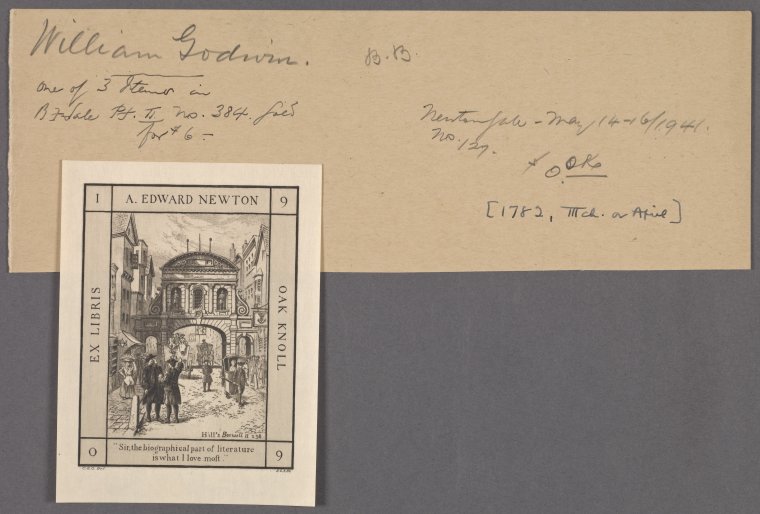 William Godwin.
B.B.
one of 3 items in
B F Sale Pt. II. No. 384. Sold
for $6 –
Newton Sale – May 14–16/1941.
No. 127.
OK
[1782, Mch. or April]
1 A. EDWARD NEWTON 9
EX LIBRIS
OAK KNOLL
Hill's Boswell II 238
0 "Sir, the biographical part of literature 9
is what I love most."